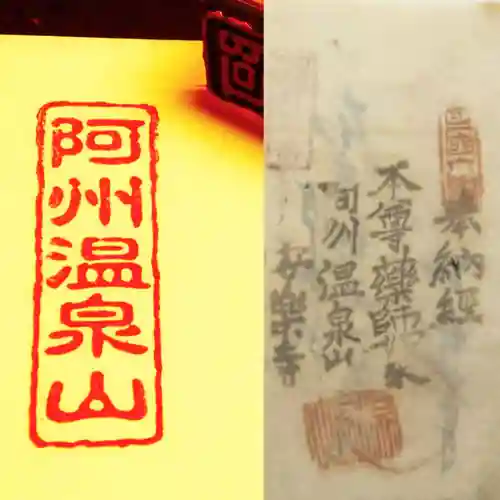 阿州温泉山
奉納經
本尊藥師
阿州温泉山
安樂寺